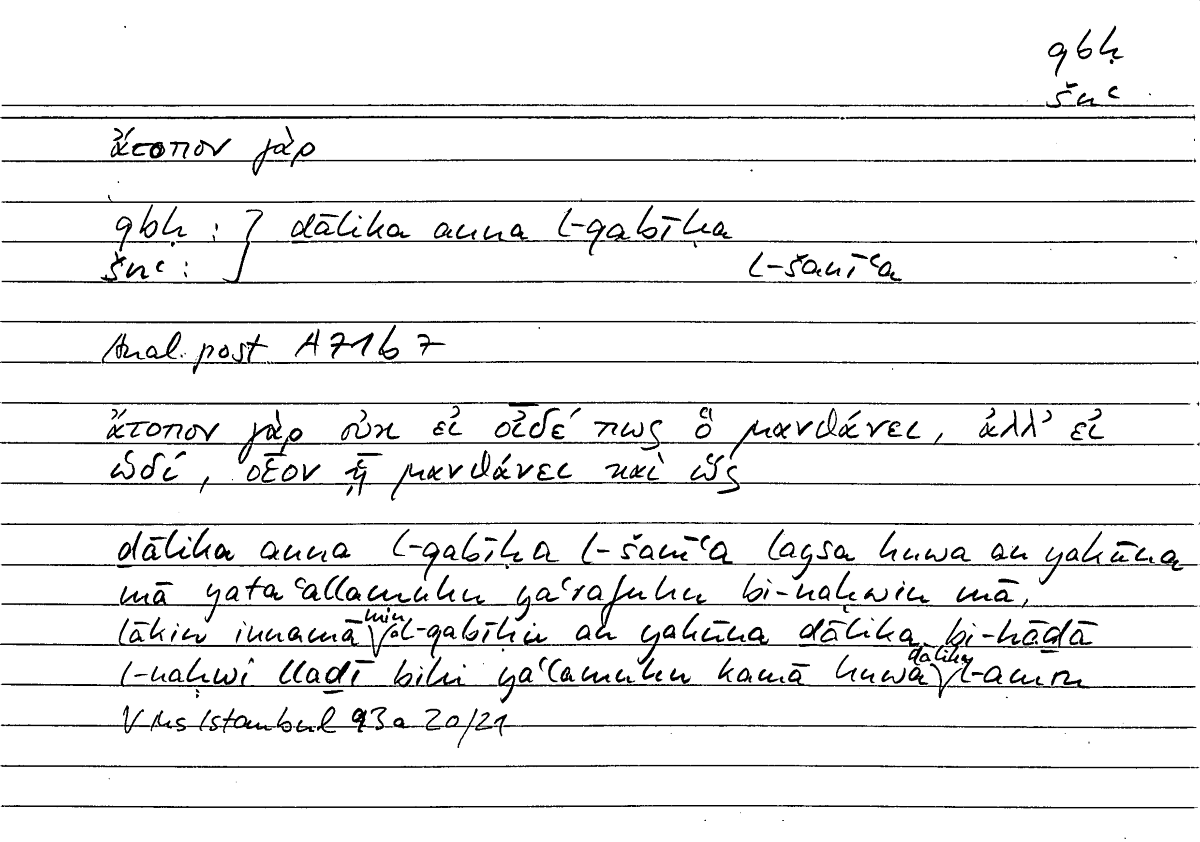 qbḥ
šnʿ
ἄτοπον γὰρ
qbḥ : } ḏālika anna l-qabīḥa
šnʿ : l-šanīʿa
Anal. post A 71 b 7
ἄτοπον γὰρ οὐκ εἰ οἶδέ πως ὃ μανθάνει, ἀλλ᾽ εἰ
ὡδί, οἷον ᾗ μανθάνει καὶ ὥς
ḏālika anna l-qabīḥa l-šanīʿa laysa huwa an yakūna
mā yataʿallamuhu yaʿrafuhu bi-naḥwin mā,
lākin innamā min al-qabīḥi an yakūna ḏālika bi-hāḏā
l-naḥwi llaḏī bihi yaʿlamuhu kamā huwa ḏālika l-amru
V Ms Istanbul 93a 20/21